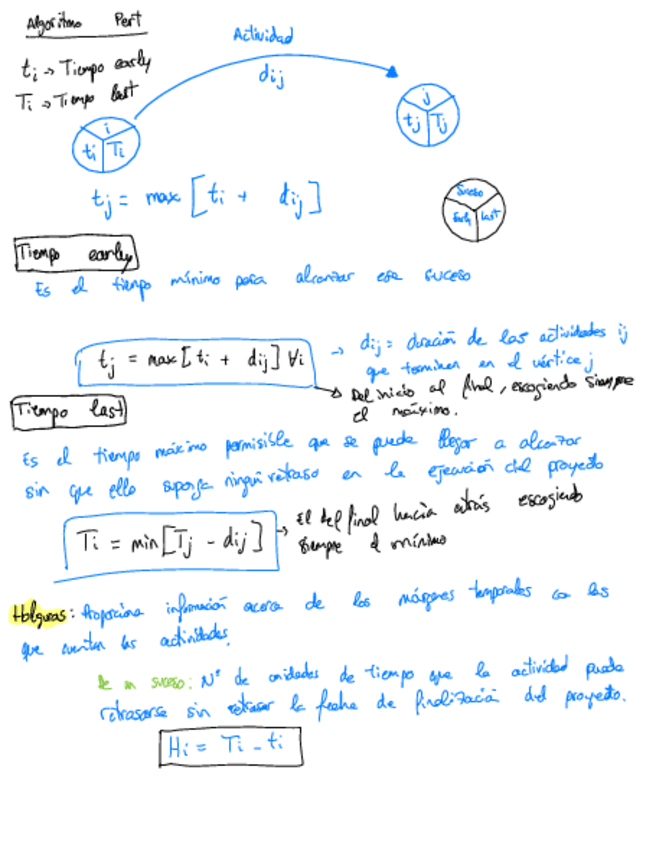 Algoritmo Pert
Actividad
ti → Tiempo early
Ti → Tiempo last
dij
i
ti Ti
j
tj Tj
tj = max [ti + dij]
Suceso
Early last
Tiempo early
Es el tiempo mínimo para alcanzar ese suceso
tj = max [ti + dij] ∀i
→ dij = duración de las actividades ij
que terminan en el vértice j
→ Del inicio al final, escogiendo siempre
el máximo.
Tiempo last
Es el tiempo máximo permisible que se puede llegar a alcanzar
sin que ello suponga ningún retraso en la ejecución del proyecto
Ti = min [Tj - dij]
→ El del final hacia atrás escogiendo
siempre el mínimo
Holguras: Proporciona información acerca de los márgenes temporales con las
que cuentan las actividades.
De un suceso: Nº de unidades de tiempo que la actividad puede
retrasarse sin retrasar la fecha de finalización del proyecto.
Hi = Ti - ti